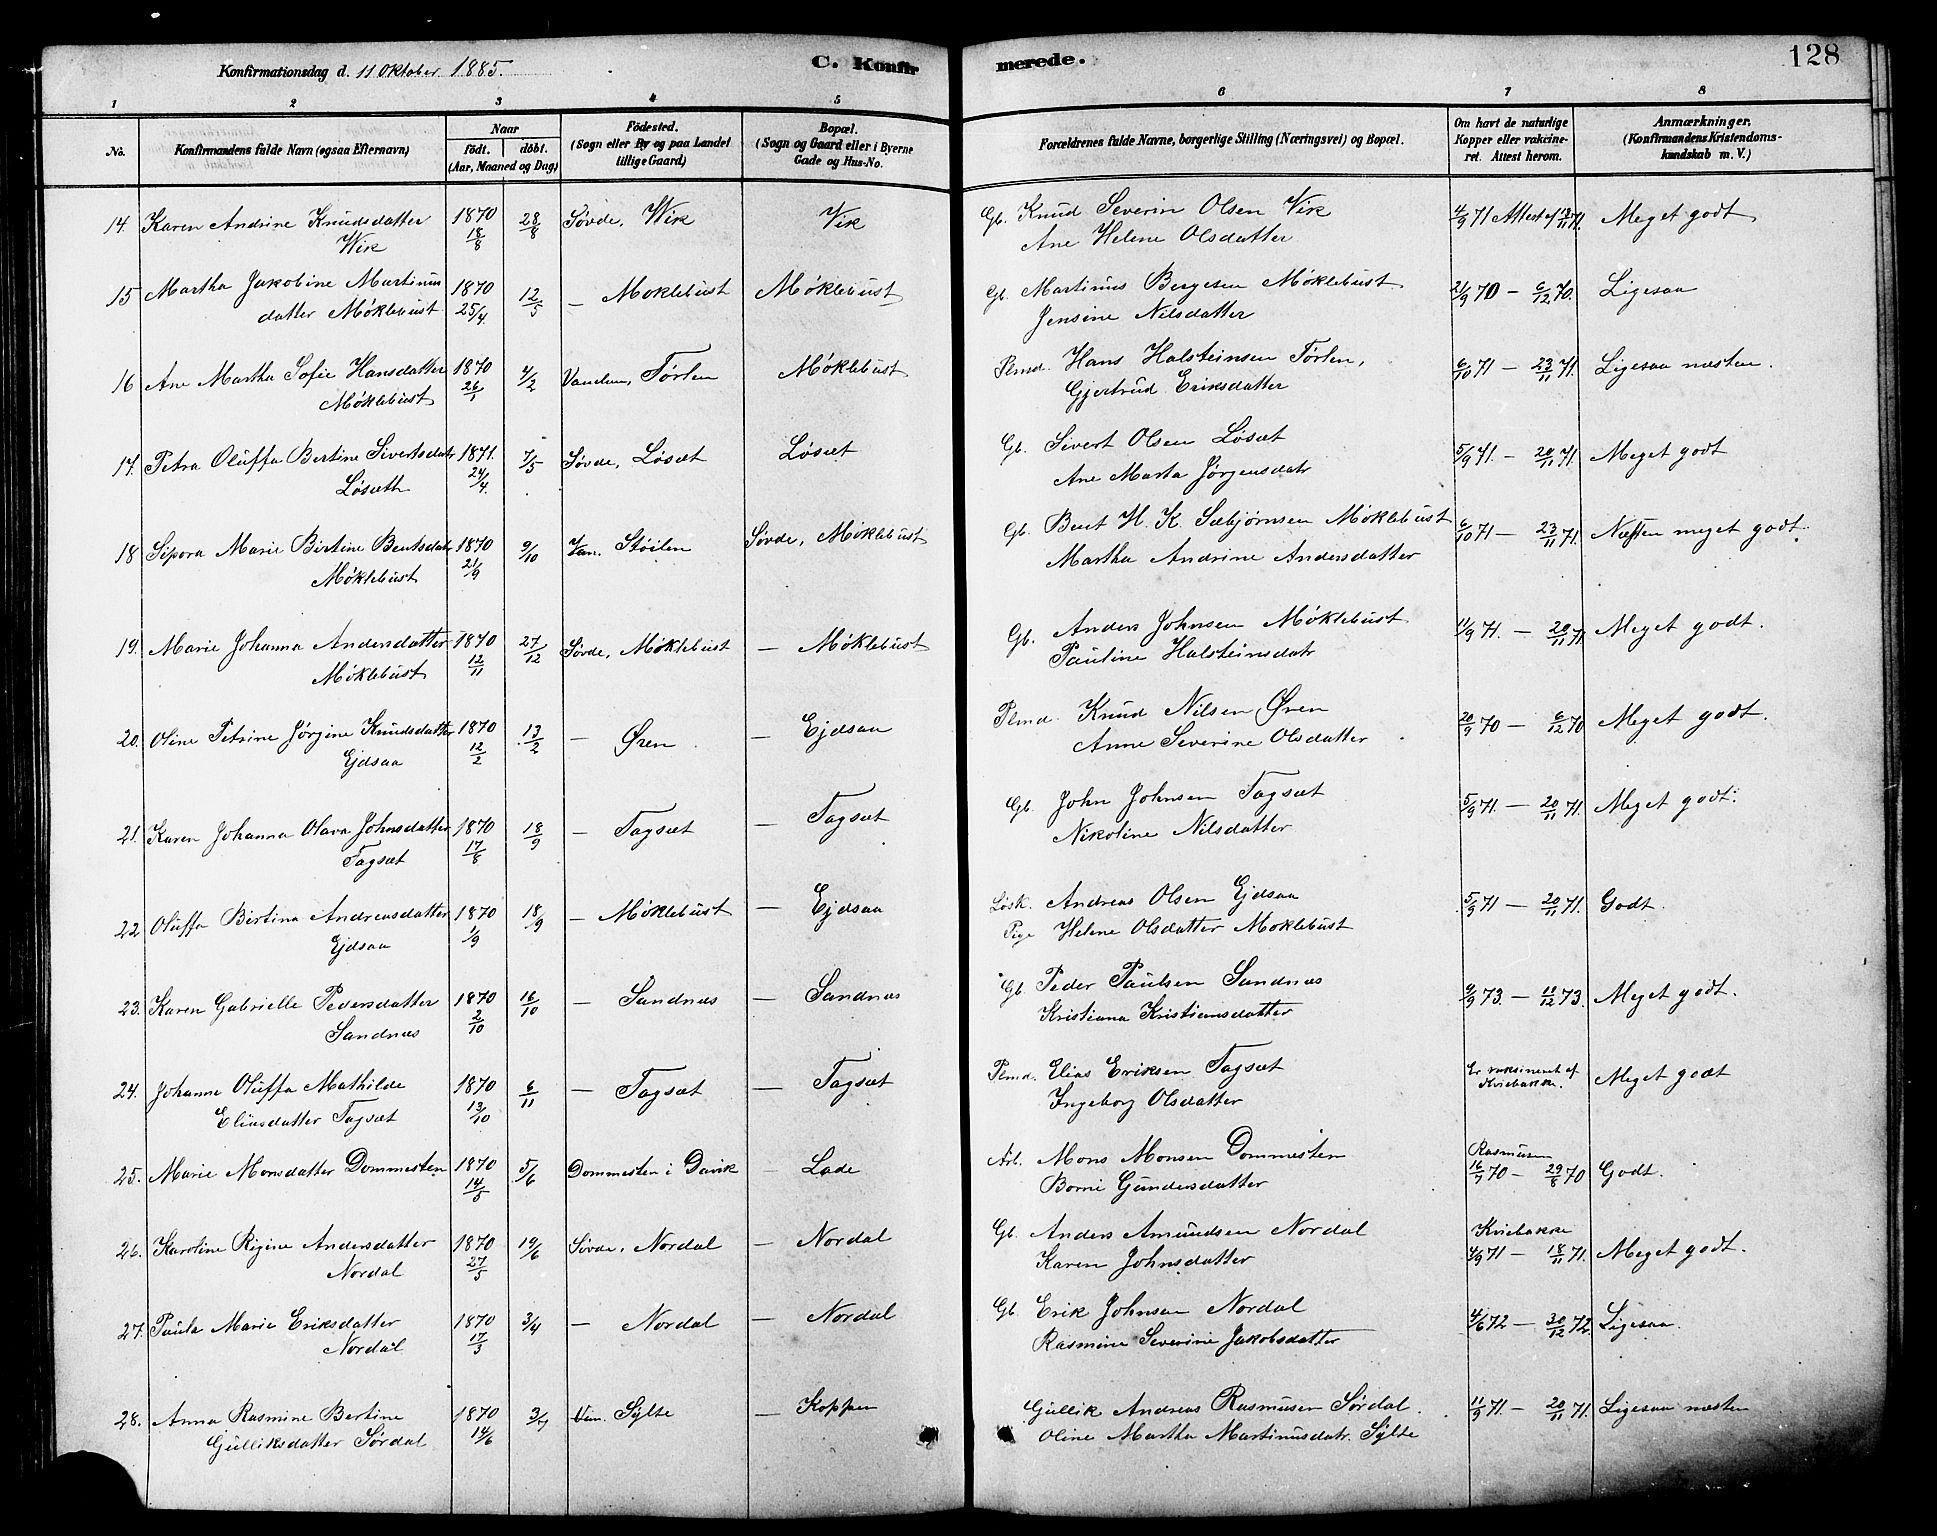 128
Konfirmationsdag d. 11 Oktober 1885.
C. Konfirmerede.
1 2 3 4 5 6 7 8
No.
Konfirmandens fulde Navn (ogsaa Efternavn)
Naar
Födt. döbt.
(Aar, Maaned og Dag)
Födested.
(Sogn eller By og paa Landet
tillige Gaard)
Bopæl.
(Sogn og Gaard eller i Byerne
Gade og Hus-No.
Forældrenes fulde Navne, borgerlige Stilling (Næringsvei) og Bopæl.
Om havt de naturlige
Kopper eller vakcine-
ret. Attest herom.
Anmærkninger.
(Konfirmandens Kristendoms-
kundskab m. V.)
14. Karen Andrine Knudsdatter 1870 28/8 Søvde, Wik Vik Gb. Knud Severin Olsen Vik 4/9 71 Attest af 18/11 71. Meget godt
Wik 18/8 Ane Helene Olsdatter
15 Martha Jakobine Martinus 1870 12/5 — Moklebust Møklebust Gb. Martinus Bergesen Møklebust 21/9 70 — 6/12 70. Ligesaa
datter Møklebust 25/4. Jensine Nilsdatter
16 Ane Martha Sofie Hansdatter 1870 4/2 Vanelven, Tørlen Møklebust Plmd. Hans Halsteinsen Tørlen, 6/10 71 — 23/11 71. Ligesaa næsten.
Møklebust 26/1 Gjertrud Eriksdatter
17. Petra Oluffa Bertine Sivertsdatr 1871. 7/5 Søvde, Løsæt Løsæt Gb. Sivert Olsen Løsæt 5/9 71. — 20/11 71. Meget godt
Løsæth 24/4. Ane Marta Jørgensdatr
18 Sipora Marie Birtine Bentsdatr 1870 9/10 Van. Støilen Søvde, Møklebust Gb. Bent H. K. Sæbjørnsen Møklebust 6/10 71 — 23/11 71. Næsten meget godt.
Møklebust 21/9 Martha Andrine Andersdatter
19. Marie Johanna Andersdatter 1870 27/12 Søvde, Møklebust — Møklebust Gb. Anders Johnsen Møklebust 11/9 71. — 20/11 71 Meget godt.
Møklebust 12/11 Pauline Halsteinsdatr
20. Oline Petrine Jørgine Knudsdatter 1870 13/2 — Øren — Ejdsaa Plmd. Knud Nilsen Øren 20/9 70 — 6/12 70 Meget godt.
Ejdsaa 12/2 Anne Severine Olsdatter
21. Karen Johanna Olava Johnsdatter 1870 18/9 — Tagsæt — Tagsæt Gb. John Johnsen Tagsæt 5/9 71. — 20/11 71. Meget godt.
Tagsæt 17/8 Nikoline Nilsdatter
22 Oluffa Birtina Andreasdatter 1870 18/9 — Møklebust — Ejdsaa Løsk. Andreas Olsen Ejdsaa 5/9 71 — 20/11 71. Godt.
Ejdsaa 1/9 Pige Helene Olsdatter Moklebust
23. Karen Gabrielle Pedersdatter 1870 16/10 — Sandnæs — Sandnæs Gb. Peder Paulsen Sandnæs 9/9 73. — 11/12 73. Meget godt.
Sandnæs 2/10 Kristiana Kristiansdatter
24. Johanne Oluffa Mathilde 1870 6/11 — Tagsæt — Tagsæt Plmd. Elias Eriksen Tagsæt Er vaksineret af Meget godt
Eliasdatter Tagsæt 13/10 Ingeborg Olsdatter Kviebakke.
25. Marie Monsdatter Dommesten 1870 5/6 Dommesten i Davik — Lade Arb. Mons Monsen Dommesten Rasmusen
14/5 Borni Gundersdatter 16/7 70 — 29/8 70 Godt.
26. Karoline Rigine Andersdatter 1870 19/6 Søvde, Nordal — Nordal Gb. Anders Amundsen Nordal Kviebakke
Nordal 27/5 Karen Johnsdatter 4/9 71 — 18/11 71. Meget godt.
27. Paula Marie Eriksdatter 1870 3/4 — Nordal — Nordal Gb. Erik Johnsen Nordal 4/6 72 — 30/12 72. Ligesaa.
Nordal 17/3 Rasmine Severine Jakobsdatter
28. Anna Rasmine Bertine 1870 3/7 Van. Sylte — Koppen Gullik Andreas Rasmusen Sørdal. 11/9 71. — 20/11 71. Ligesaa næsten
Gulliksdatter Sørdal 14/6 Oline Martha Martinusdatr. Sylte